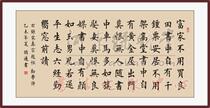 富家不用買良
田書中自有千
鍾粟安居不用
架高堂書中自
有黃金屋出門
莫恨無人隨書
中車馬多如簇
娶妻莫恨無良
媒書中自有顏
如玉男兒若遂
平生志六經勤
嚮窗前讀
右錄宋真宗趙恒勸學詩
乙未